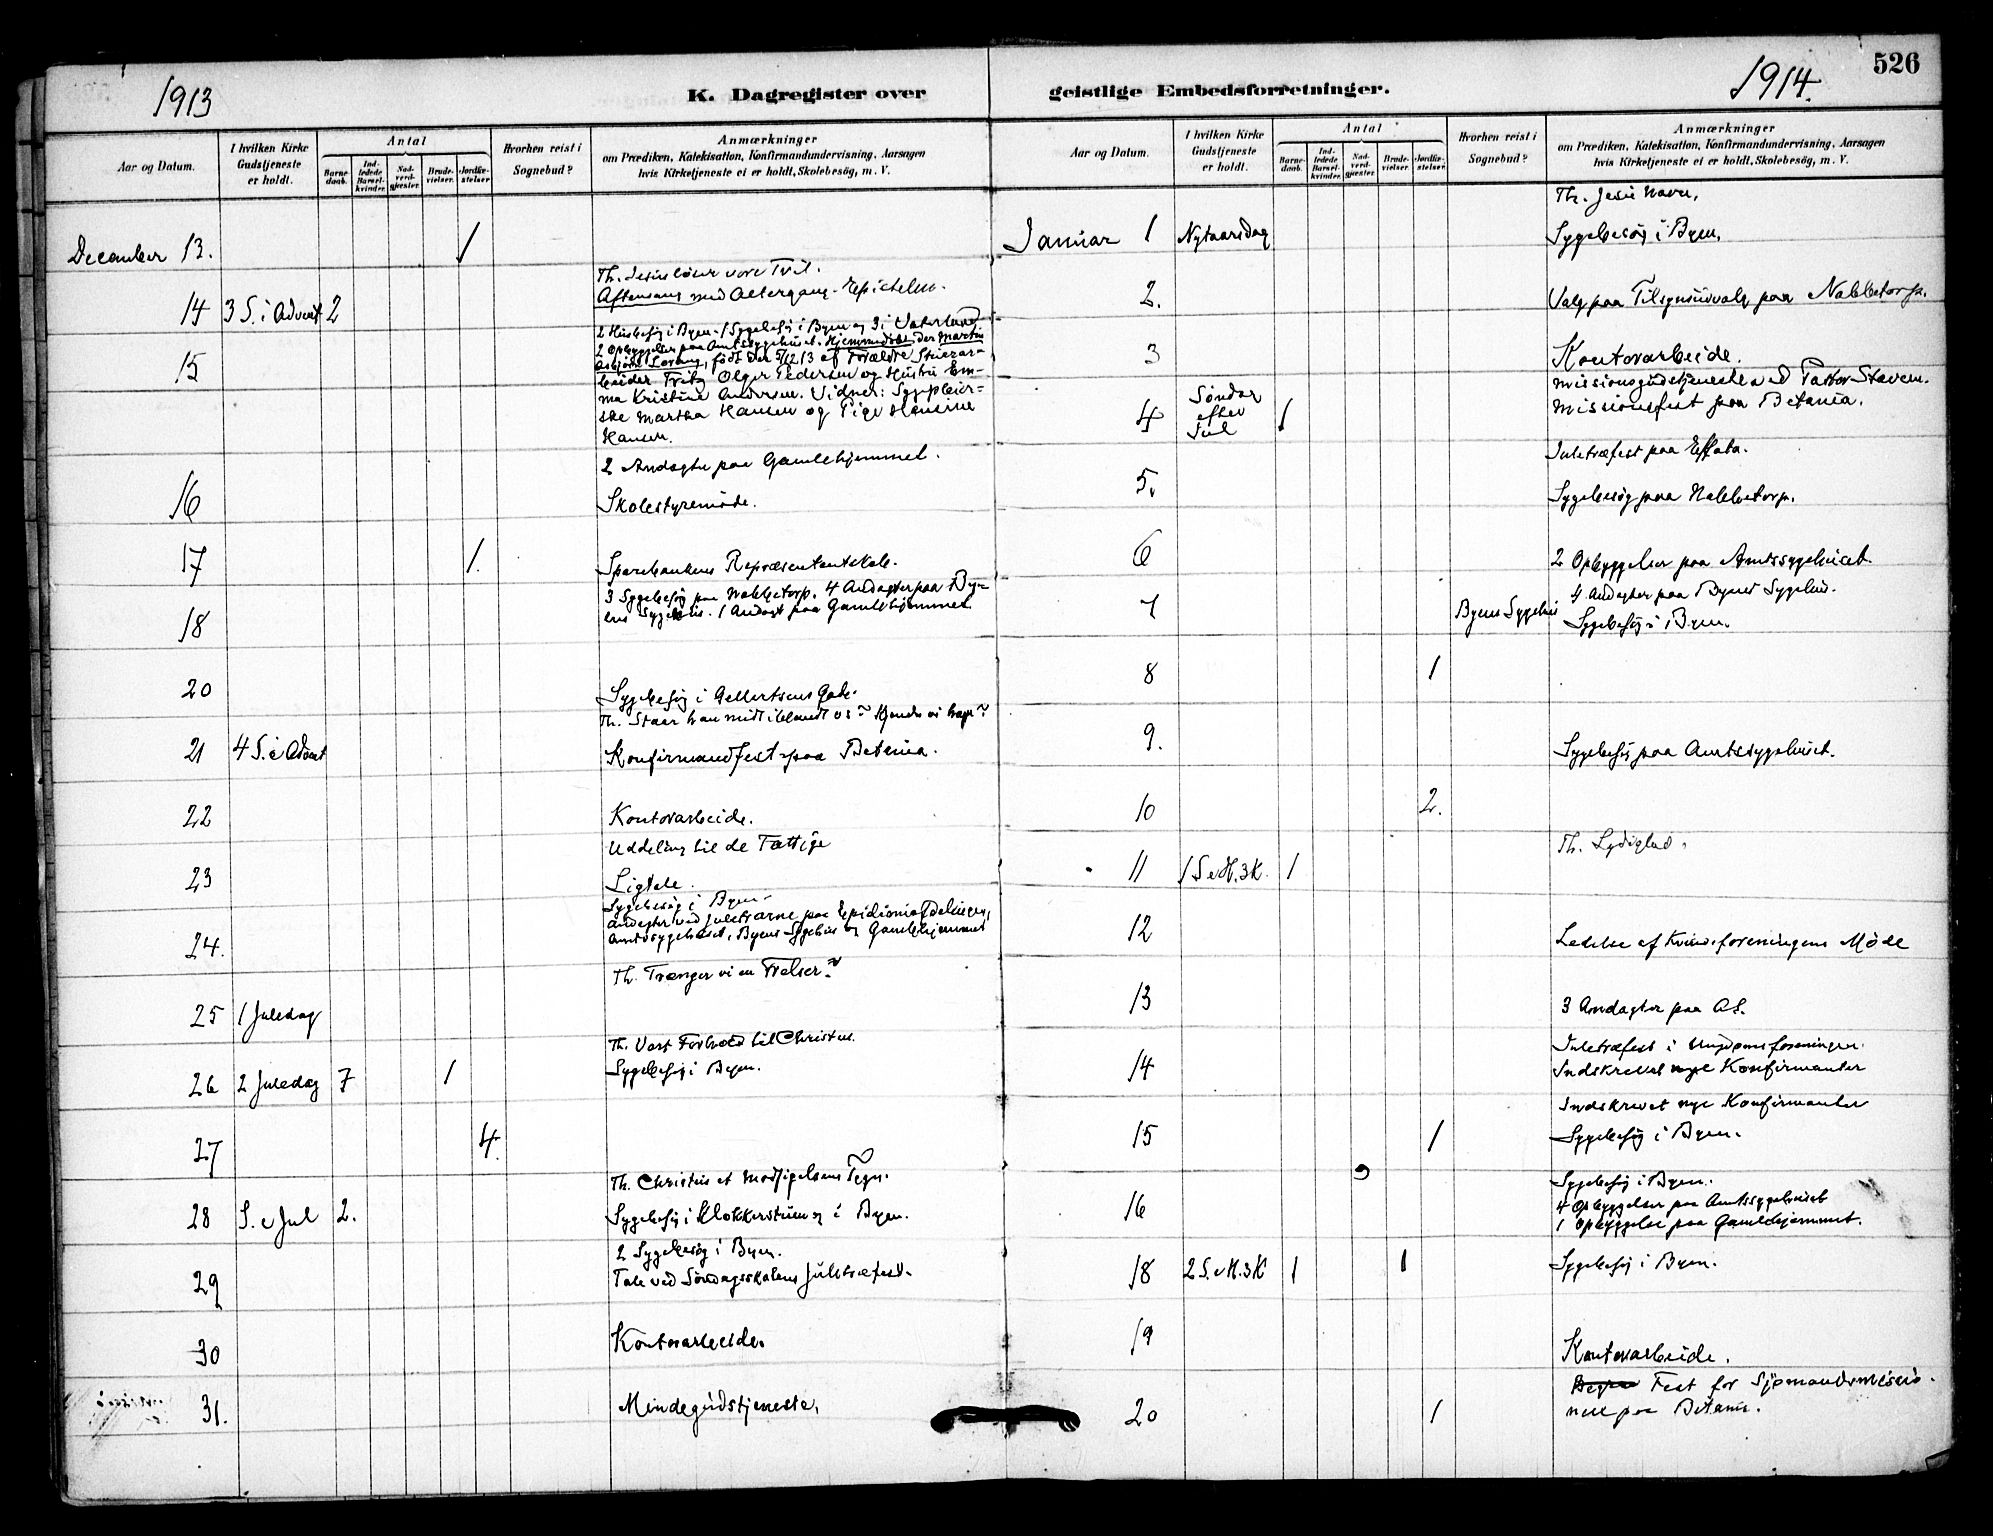 1913
K. Dagregister over
Aar og Datum.
I hvilken Kirke
Gudstjeneste
er holdt.
Antal
Barne-
daab.
Ind-
ledede
Barsel-
kvinder.
Nad-
verd-
gjester.
Brude-
vielser.
Jordfæ-
stelser.
Hvorhen reist i
Sognebud?
Anmærkninger
om Prædiken, Katekisation, Konfirmandundervisning, Aarsagen
hvis Kirketjeneste ei er holdt, Skolebesög, m. V.
December 13. 1
Th. Jesus löser vore Tvil.
Aftensang med Altergang. Epistelen.
14 3 S. i Advent 2
2 Husbesög i Byen. 1 Sygebesög i Byen og 3 i Vaterland
2 Opbyggelser paa Amtssygehuset. Hjemmedöbt der Martin
Asbjörn, född den 5/12 13 af Forældre
15
beider Fritz Olger Pedersen og Hustru Em-
ma Kristine Andersen. Vidner: Sygepleier-
ske Martha Hansen og Pige Hansine
Hansen.
2 Andagter paa Gamlehjemmet.
16 Skolestyremöde.
17 1. Sparebankens Repræsentantskab.
3 Sygebesög paa Nabbetorp. 4 Andagter paa By-
ens Sygehus. 1 Andagt paa Gamlehjemmet
18
20 Sygebesög i Gellertsens Gade.
Th. Staar han midt iblandt os? Kjender vi ham?
21 4 S. i Advent Konfirmandfest paa Betania.
22 Kontorarbeide.
Uddeling til de Fattige
23 Ligtale.
Sygebesög i Byen.
Andagter ved Juletrærne paa Epidemiafdelingen,
Amtssygehuset, Byens Sygehus og Gamlehjemmet
24.
Th. Trænger vi en Frelser?
25 1 Juledag
Th. Vort Forhold til Christus.
26 2 Juledag 7 1 Sygebesög i Byen.
27 4.
Th. Christus et Modsigelsens Tegn.
28 S. e Jul 2. Sygebesög i Klokkerstuen og i Byen.
2 Sygebesög i Byen.
29 Tale ved Söndagsskolens Juletræfest.
30 Kontorarbeide.
31. Mindegudstjeneste.
526
1914.
geistlige Embedsforretninger.
Aar og Datum.
I hvilken Kirke
Gudstjeneste
er holdt.
Antal
Barne-
daab.
Ind-
ledede
Barsel-
kvinder.
Nad-
verd-
gjester.
Brude-
vielser.
Jordfæ-
stelser.
Hvorhen reist i
Sognebud?
Anmærkninger
om Prædiken, Katekisation, Konfirmandundervisning, Aarsagen
hvis Kirketjeneste ei er holdt, Skolebesög, m. V.
Th. Jesu Navn.
Januar 1 Nytaarsdag Sygebesög i Byen.
2. Valg paa Tilsynsudvalg paa Nabbetorp.
3 Kontorarbeide.
Missionsgudstjeneste ved Pastor Staven.
4 Söndag
efter
Jul 1 Missionsfest paa Betania.
Juletræfest paa Effata.
5. Sygebesög paa Nabbetorp.
6 2 Opbyggelser paa Amtssygehuset
4 Andagter paa Byens Sygehus.
7 Byens Sygehus Sygebesög i Byen.
8 1
9. Sygebesög paa Amtssygehuset.
10 2.
Th. Lydighed.
11 1 S e H. 3 K. 1
12 Ledelse af Kvindeforeningens Möde
13 3 Andagter paa A.S.
Juletræfest i Ungdomsforeningen.
14 Indskrevet nye Konfirmanter
Indskrevet nye Konfirmanter
15 1 Sygebesög i Byen.
Sygebesög i Byen.
16 4 Opbyggelser paa Amtssygehuset
1 Opbyggelse paa Gamlehjemmet.
18 2 S. e H. 3 K 1 1 Sygebesög i Byen.
19 Kontorarbeide.
Fest for Sjömandsmissio-
20 1 nen paa Betania.